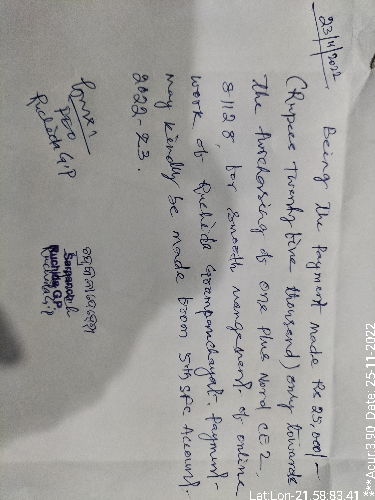 23/11/2022
Being the Payment made Rs 25,000/-
(Rupees Twenty five thousand) only towards
The Purchasing of one Plus Nord CE2,
8/128, for smooth mengement of online
work of Ruchida Grampanchayat. Payment-
may kindly be made from 5th SFC Account.
2022-23.
PEO
Ruchida G.P
Sarpanch
Ruchida G.P
Ruchida G.P
Lat/Lon-21.58:83.41 ***Acur:3.90 Date: 25-11-2022